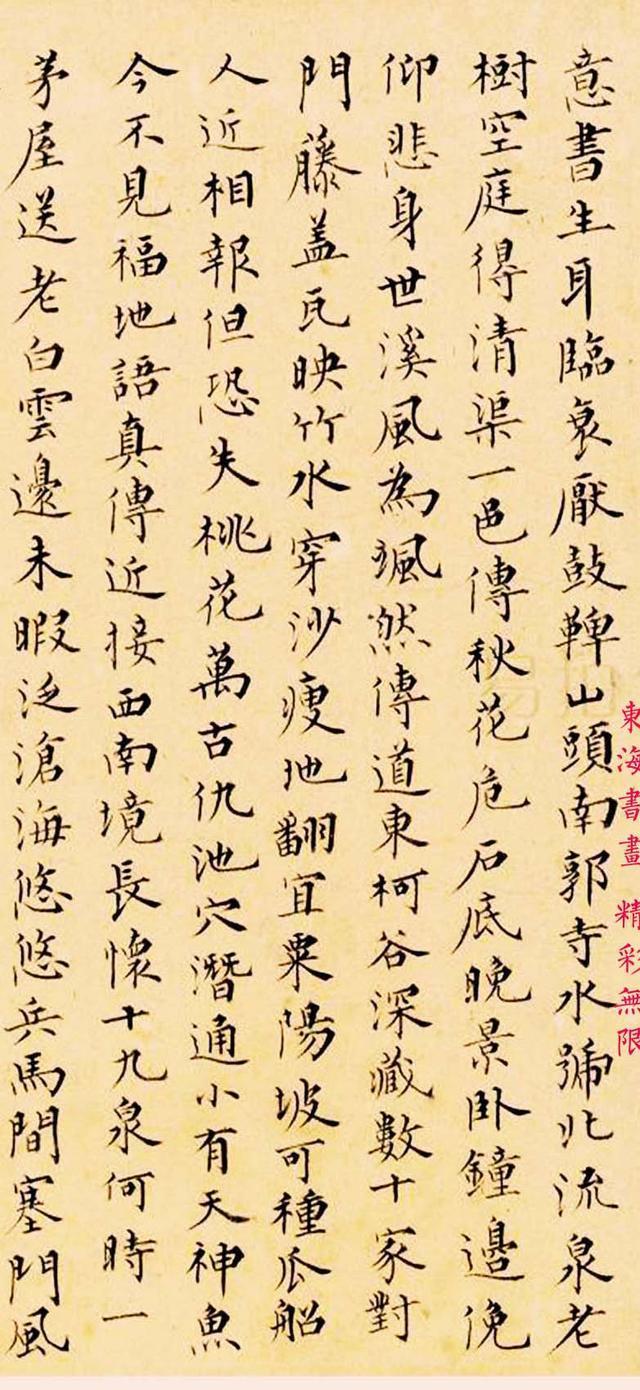 意書生耳臨衰厭鼓鞞山頭南郭寺水號北流泉老
樹空庭得清渠一邑傳秋花危石底晚景臥鐘邊俛
仰悲身世溪風為颯然傳道東柯谷深藏數十家對
門藤盖瓦映竹水穿沙瘦地翻宜粟陽坡可種瓜船
人近相報但恐失桃花萬古仇池穴潛通小有天神魚
今不見福地語真傳近接西南境長懷十九泉何時一
茅屋送老白雲邊未暇泛滄海悠悠兵馬間塞門風
東海書畫 精彩無限